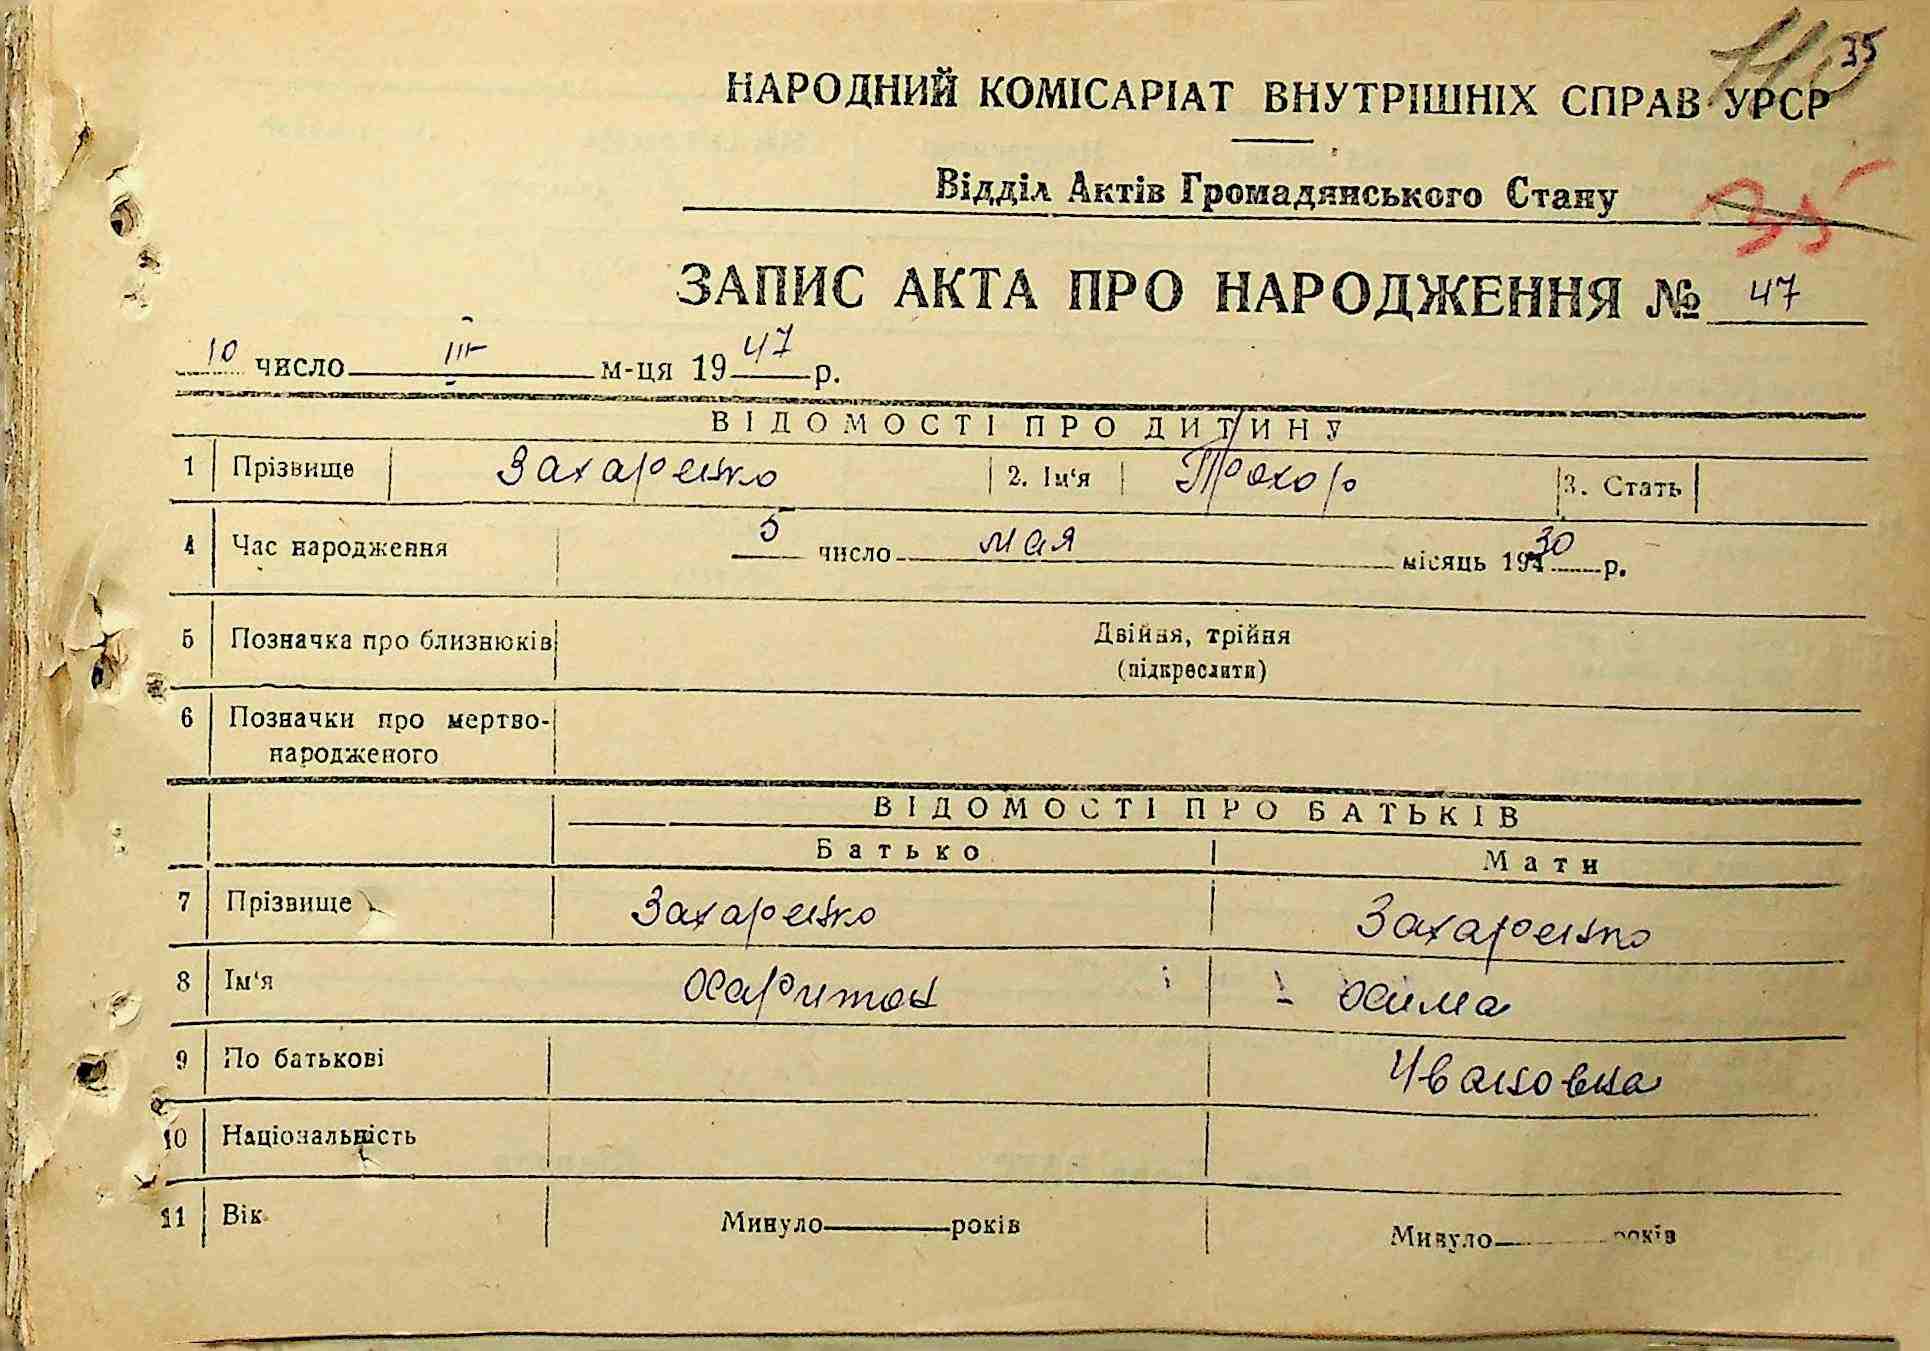 110 35
НАРОДНИЙ КОМІСАРІАТ ВНУТРІШНІХ СПРАВ УРСР
Відділ Актів Громадянського Стану 35
ЗАПИС АКТА ПРО НАРОДЖЕННЯ № 47
10 число III м-ця 1947 р.
ВІДОМОСТІ ПРО ДИТИНУ
1 Прізвище Захаренко 2. Ім'я Прохор 3. Стать
4 Час народження 5 число мая місяць 1930 р.
5 Позначка про близнюків Двійня, трійня
(підкреслити)
6 Позначки про мертво-
народженого
ВІДОМОСТІ ПРО БАТЬКІВ
Батько Мати
7 Прізвище Захаренко Захаренко
8 Ім'я Харитон Хима
9 По батькові Ивановна
10 Національність
11 Вік Минуло років Минуло років